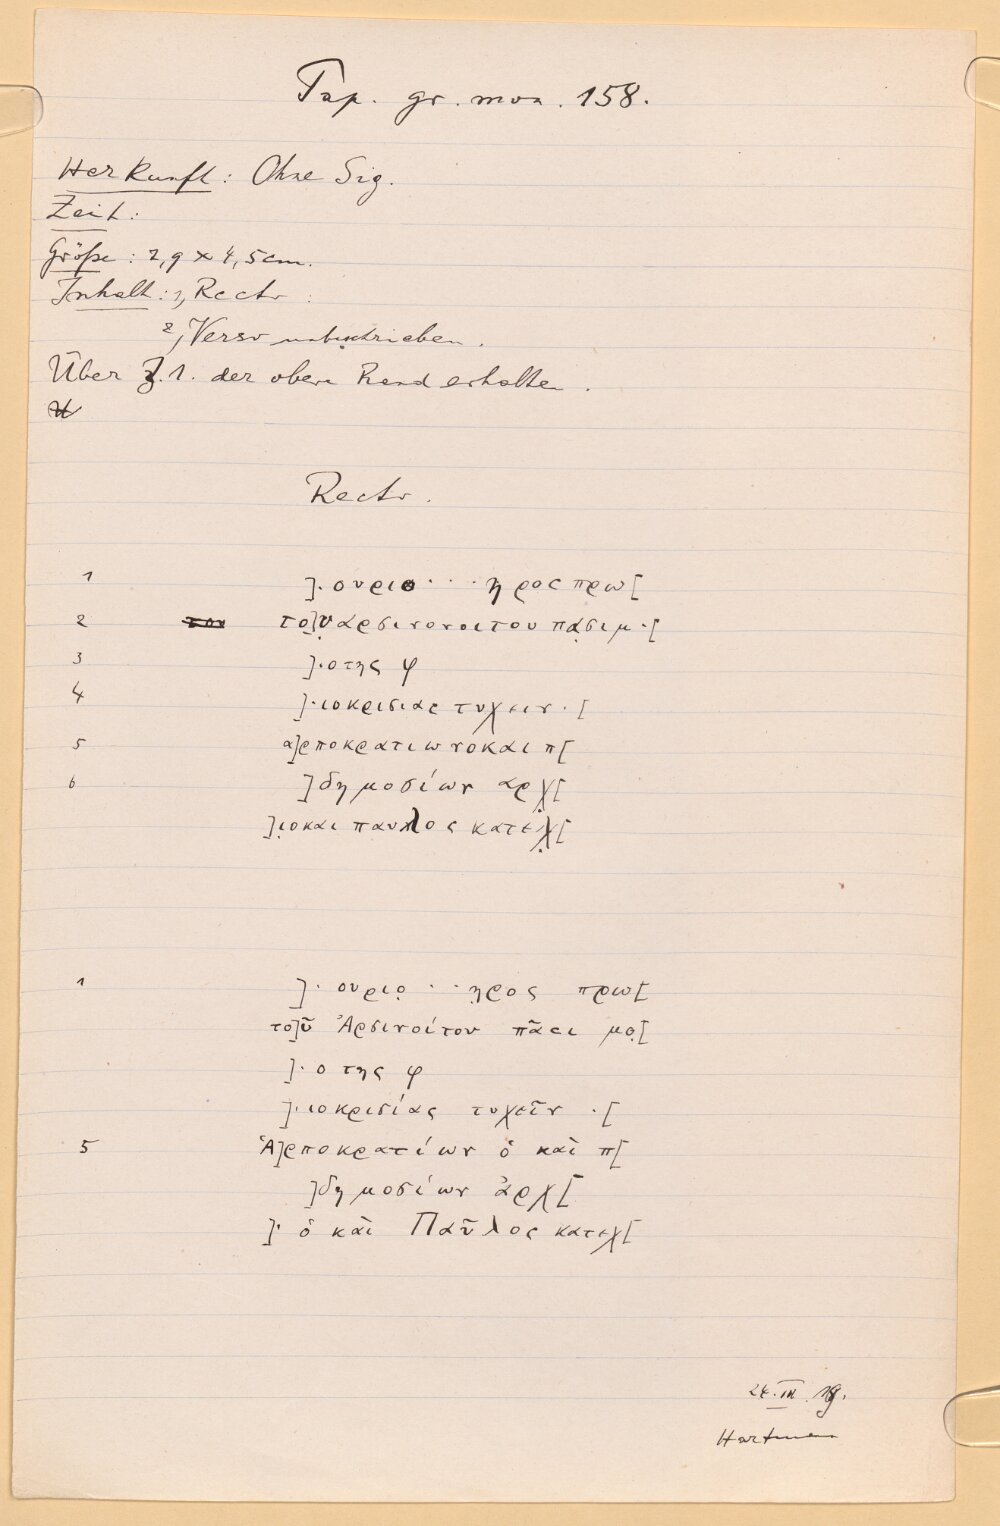 Pap. gr. mon. 158.
Herkunft: Ohne Sig.
Zeit:
Größe: 2,9 x 4,5 cm.
Inhalt: 1, Recto:
2, Verso unbeschrieben.
Über Z. 1. der obere Rand erhalten.
Recto.
1 ]. ουριο . . . ηρος πρω[
2 το]υαρσινονοιτου πασιμ.[
3 ].οτης φ
4 ].ιοκρισιας τυχειν.[
5 α]ρποκρατιωνοκαιπ[
6 ]δημοσίων αρχ[
]ιοκαι παυλος κατεχ[
1 ]. ουριο . . ηρος πρω[
το]ῦ Ἀρσινοίτου πᾶσι μο[
]. ο της φ
].ιοκρισίας τυχεῖν .[
5 Ἁ]ρποκρατίων ὁ καὶ π[
]δημοσίων ἀρχ[
]. ὁ καὶ Παῦλος κατεχ[
24. III. 19.
Hartmann